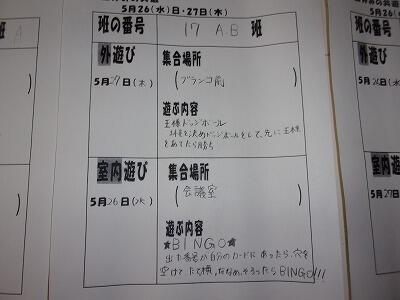 5月26(水)日・27日(木)
班の番号 17 A.B 班
外遊び
5月27日(木)
集合場所
(ブランコ前)
遊ぶ内容
王様ドッジボール
王様を決めドッジボールをして、先に王様
をあてたら勝ち
室内遊び
5月26日(水)
集合場所
(会議室)
遊ぶ内容
★BINGO★
出た番号が自分のカードにあったら、穴を
空けて たて、横、ななめ、そろったらBINGO!!!
班 A
室内
5月27日
外
5月